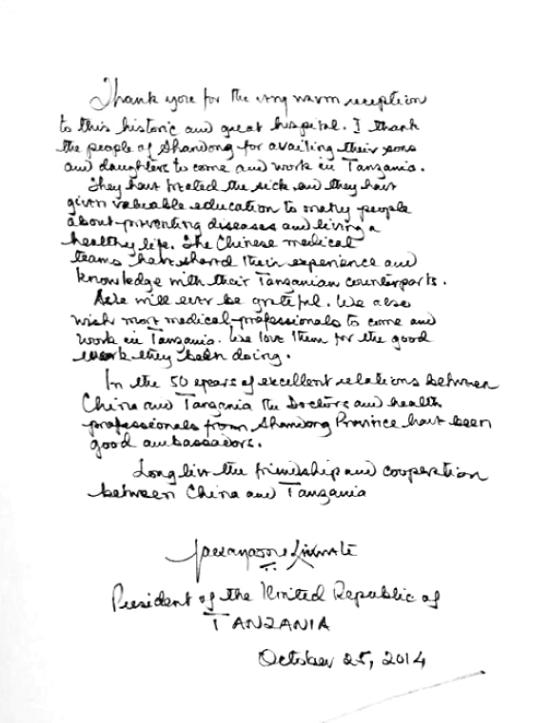 Thank you for the very warm reception
to this historic and great hospital. I thank
the people of Shandong for availing their sons
and daughters to come and work in Tanzania.
They have treated the sick and they have
given valuable education to many people
about preventing diseases and living a
healthy life. The Chinese medical
teams have shared their experience and
knowledge with their Tanzanian counterparts.
We will ever be grateful. We also
wish more medical professionals to come and
work in Tanzania. We love them for the good
work they been doing.
In the 50 years of excellent relations between
China and Tanzania the Doctors and health
professionals from Shandong Province have been
good ambassadors.
Long live the friendship and cooperation
between China and Tanzania
Kikwete
President of the United Republic of
TANZANIA
October 25, 2014